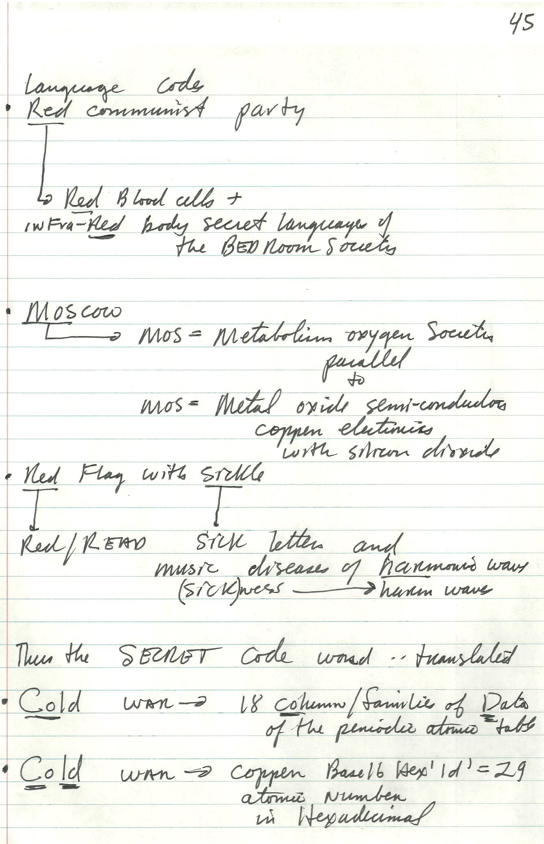 45
Language codes
• Red communist party
Red Blood cells +
inFra-Red body secret languages of
the BEDRoom Societies
• Moscow
MOS = Metabolism oxygen Societies
parallel
to
MOS = Metal oxide semi-conductors
copper electronics
with silicon dioxide
• Red Flag with Sickle
Red/READ Sick letters and
music diseases of harmonic wave
(Sick)ness → harm wave
Thus the SECRET Code word .. translated
• Cold WAR → 18 column/families of Data
of the periodic atomic table
• Cold WAR → copper Base16 Hex '1d' = 29
atomic Number
in Hexadecimal